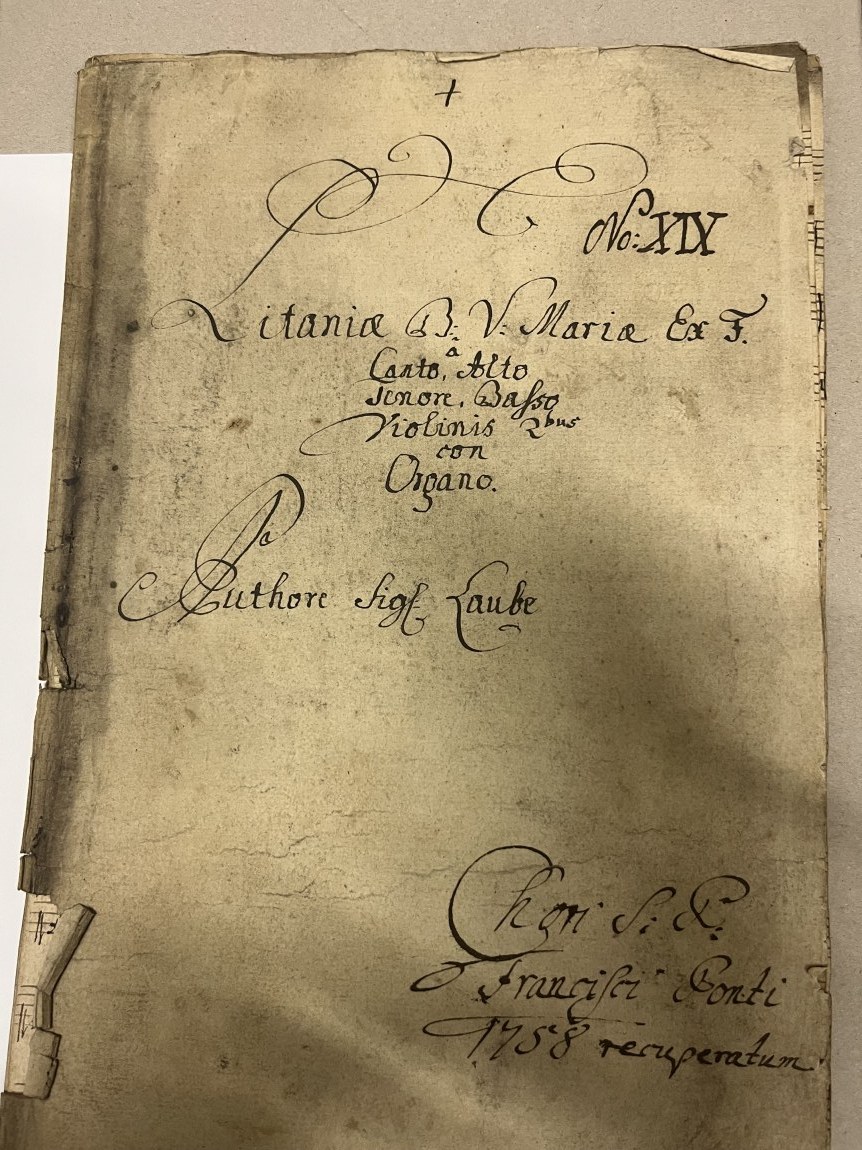 +
No: XIX
Litaniæ B: V: Mariæ Ex F.
a
Canto, Alto
Tenore, Basso
Violinis 2bus
con
Organo.
Authore Sigr Laube
Chori S: P:
Francisci Ponti
1758 recuperatum